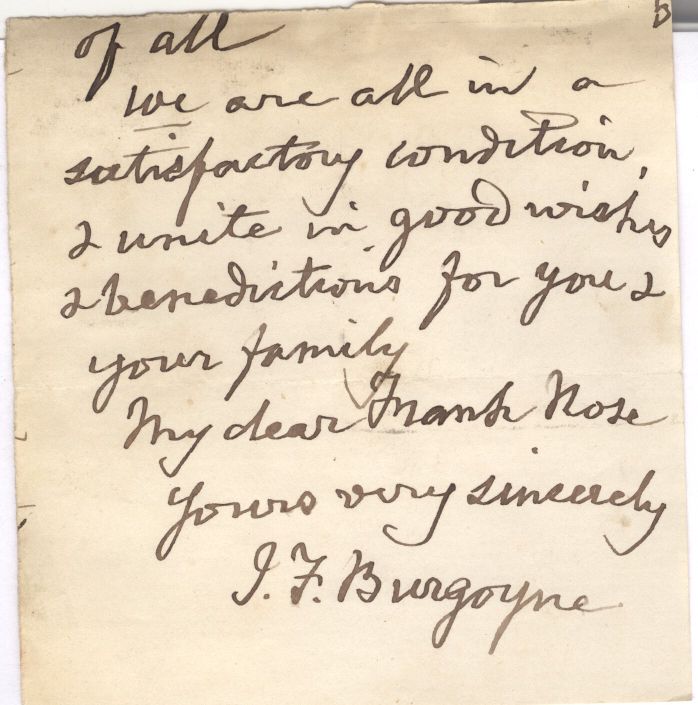 of all
We are all in a
satisfactory condition,
& unite in good wishes
& benedictions for you &
your family
My dear Frank Rose
Yours very sincerely
J. F. Burgoyne